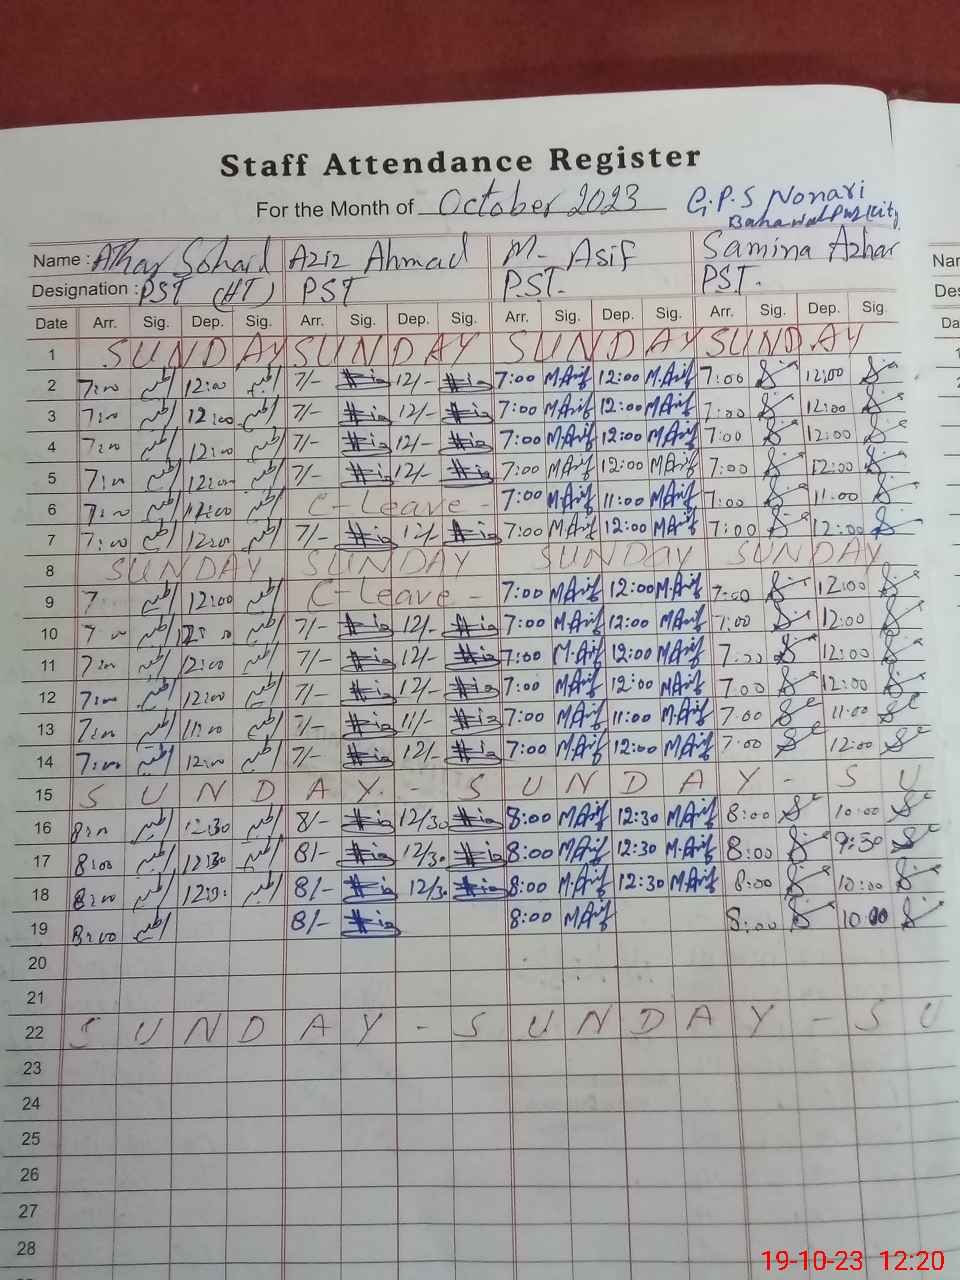 Staff Attendance Register
For the Month of October 2023 G.P.S Nonari
Bahawalpur City
Name : Athar Sohail Aziz Ahmad M. Asif Samina Azhar Nar
Designation : PST (HT) PST P.S.T. PST. Des
Date Arr. Sig. Dep. Sig. Arr. Sig. Dep. Sig. Arr. Sig. Dep. Sig. Arr. Sig. Dep. Sig. Da
1 SUNDAY SUNDAY SUNDAY SUNDAY
2 7:00 12:00 7/- 12/- 7:00 M.Asif 12:00 M.Asif 7:00 12:00
3 7:00 12:00 7/- 12/- 7:00 M.Asif 12:00 M.Asif 7:00 12:00
4 7:00 12:00 7/- 12/- 7:00 M.Asif 12:00 M.Asif 7:00 12:00
5 7:00 12:00 7/- 12/- 7:00 M.Asif 12:00 M.Asif 7:00 12:00
6 7:00 C-Leave - 7:00 M.Asif 11:00 M.Asif 7:00 11:00
7 7:00 12:00 7/- 12/- 7:00 M.Asif 12:00 M.Asif 7:00 12:00
8 SUNDAY SUNDAY SUNDAY SUNDAY
9 7 12:00 C-Leave - 7:00 M.Asif 12:00 M.Asif 7:00 12:00
10 7:00 12:00 7/- 12/- 7:00 M.Asif 12:00 M.Asif 7:00 12:00
11 7:00 12:00 7/- 12/- 7:00 M.Asif 12:00 M.Asif 7:00 12:00
12 7:00 12:00 7/- 12/- 7:00 M.Asif 12:00 M.Asif 7:00 12:00
13 7:00 11:00 7/- 11/- 7:00 M.Asif 11:00 M.Asif 7:00 11:00
14 7:00 12:00 7/- 12/- 7:00 M.Asif 12:00 M.Asif 7:00 12:00
15 S U N D A Y - S U N D A Y - S U
16 8:00 12:30 8/- 12/30 8:00 M.Asif 12:30 M.Asif 8:00 10:00
17 8:00 12:30 8/- 12/30 8:00 M.Asif 12:30 M.Asif 8:00 9:50
18 8:00 12:30 8/- 12/30 8:00 M.Asif 12:30 M.Asif 8:00 10:00
19 8:00 8/- 8:00 M.Asif 8:00 10:00
20
21
22 S U N D A Y - S U N D A Y - S U
23
24
25
26
27
28
19-10-23 12:20